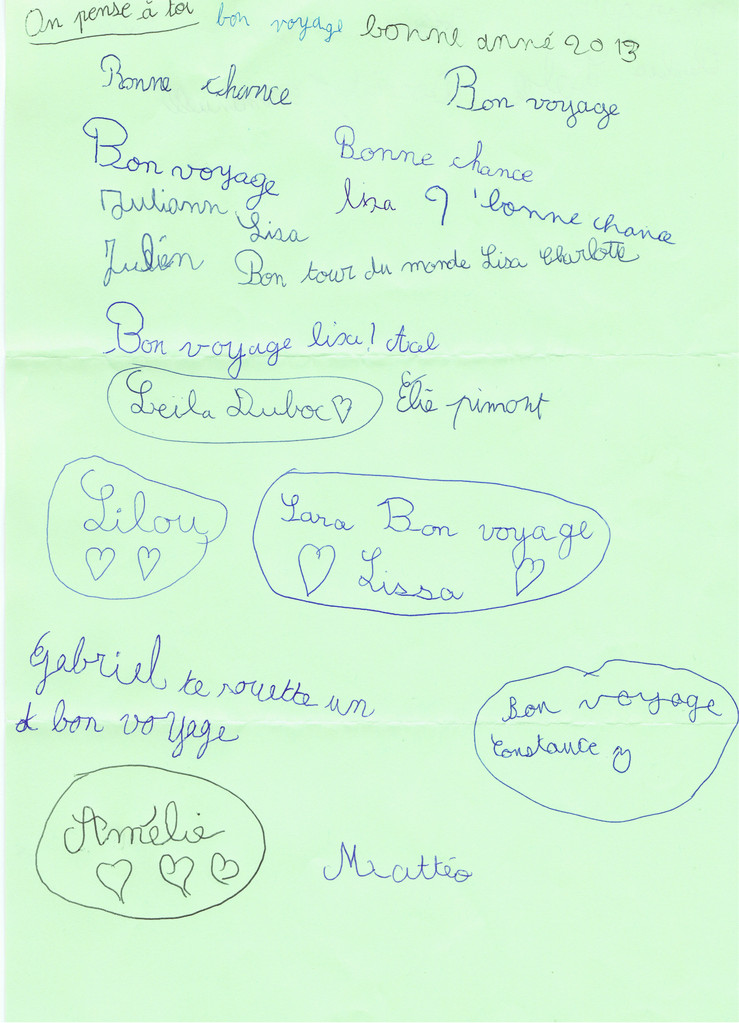 On pense à toi bon voyage bonne anné 2013
Bonne chance Bon voyage
Bon voyage Bonne chance
Juliann lisa 'bonne chance
Lisa
Julien Bon tour du monde Lisa Charlotte
Bon voyage lisa!
Leïla Duboc Élie pimont
Lilou
Lara Bon voyage
Lissa
Gabriel te souette un
bon voyage
Bon voyage
Constance
Amélie
Mattéo